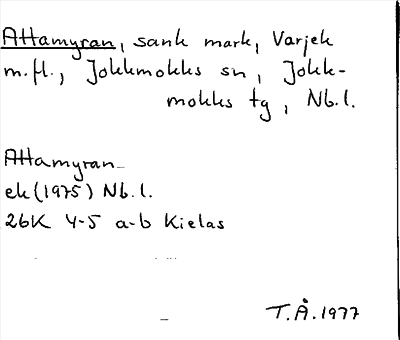 Attamyran, sank mark, Varjek
m.fl., Jokkmokks sn, Jokk-
mokks tg, Nb.l.
Attamyran
ek (1975) Nb.l.
26K 4-5 a-b Kielas
T.Å. 1977